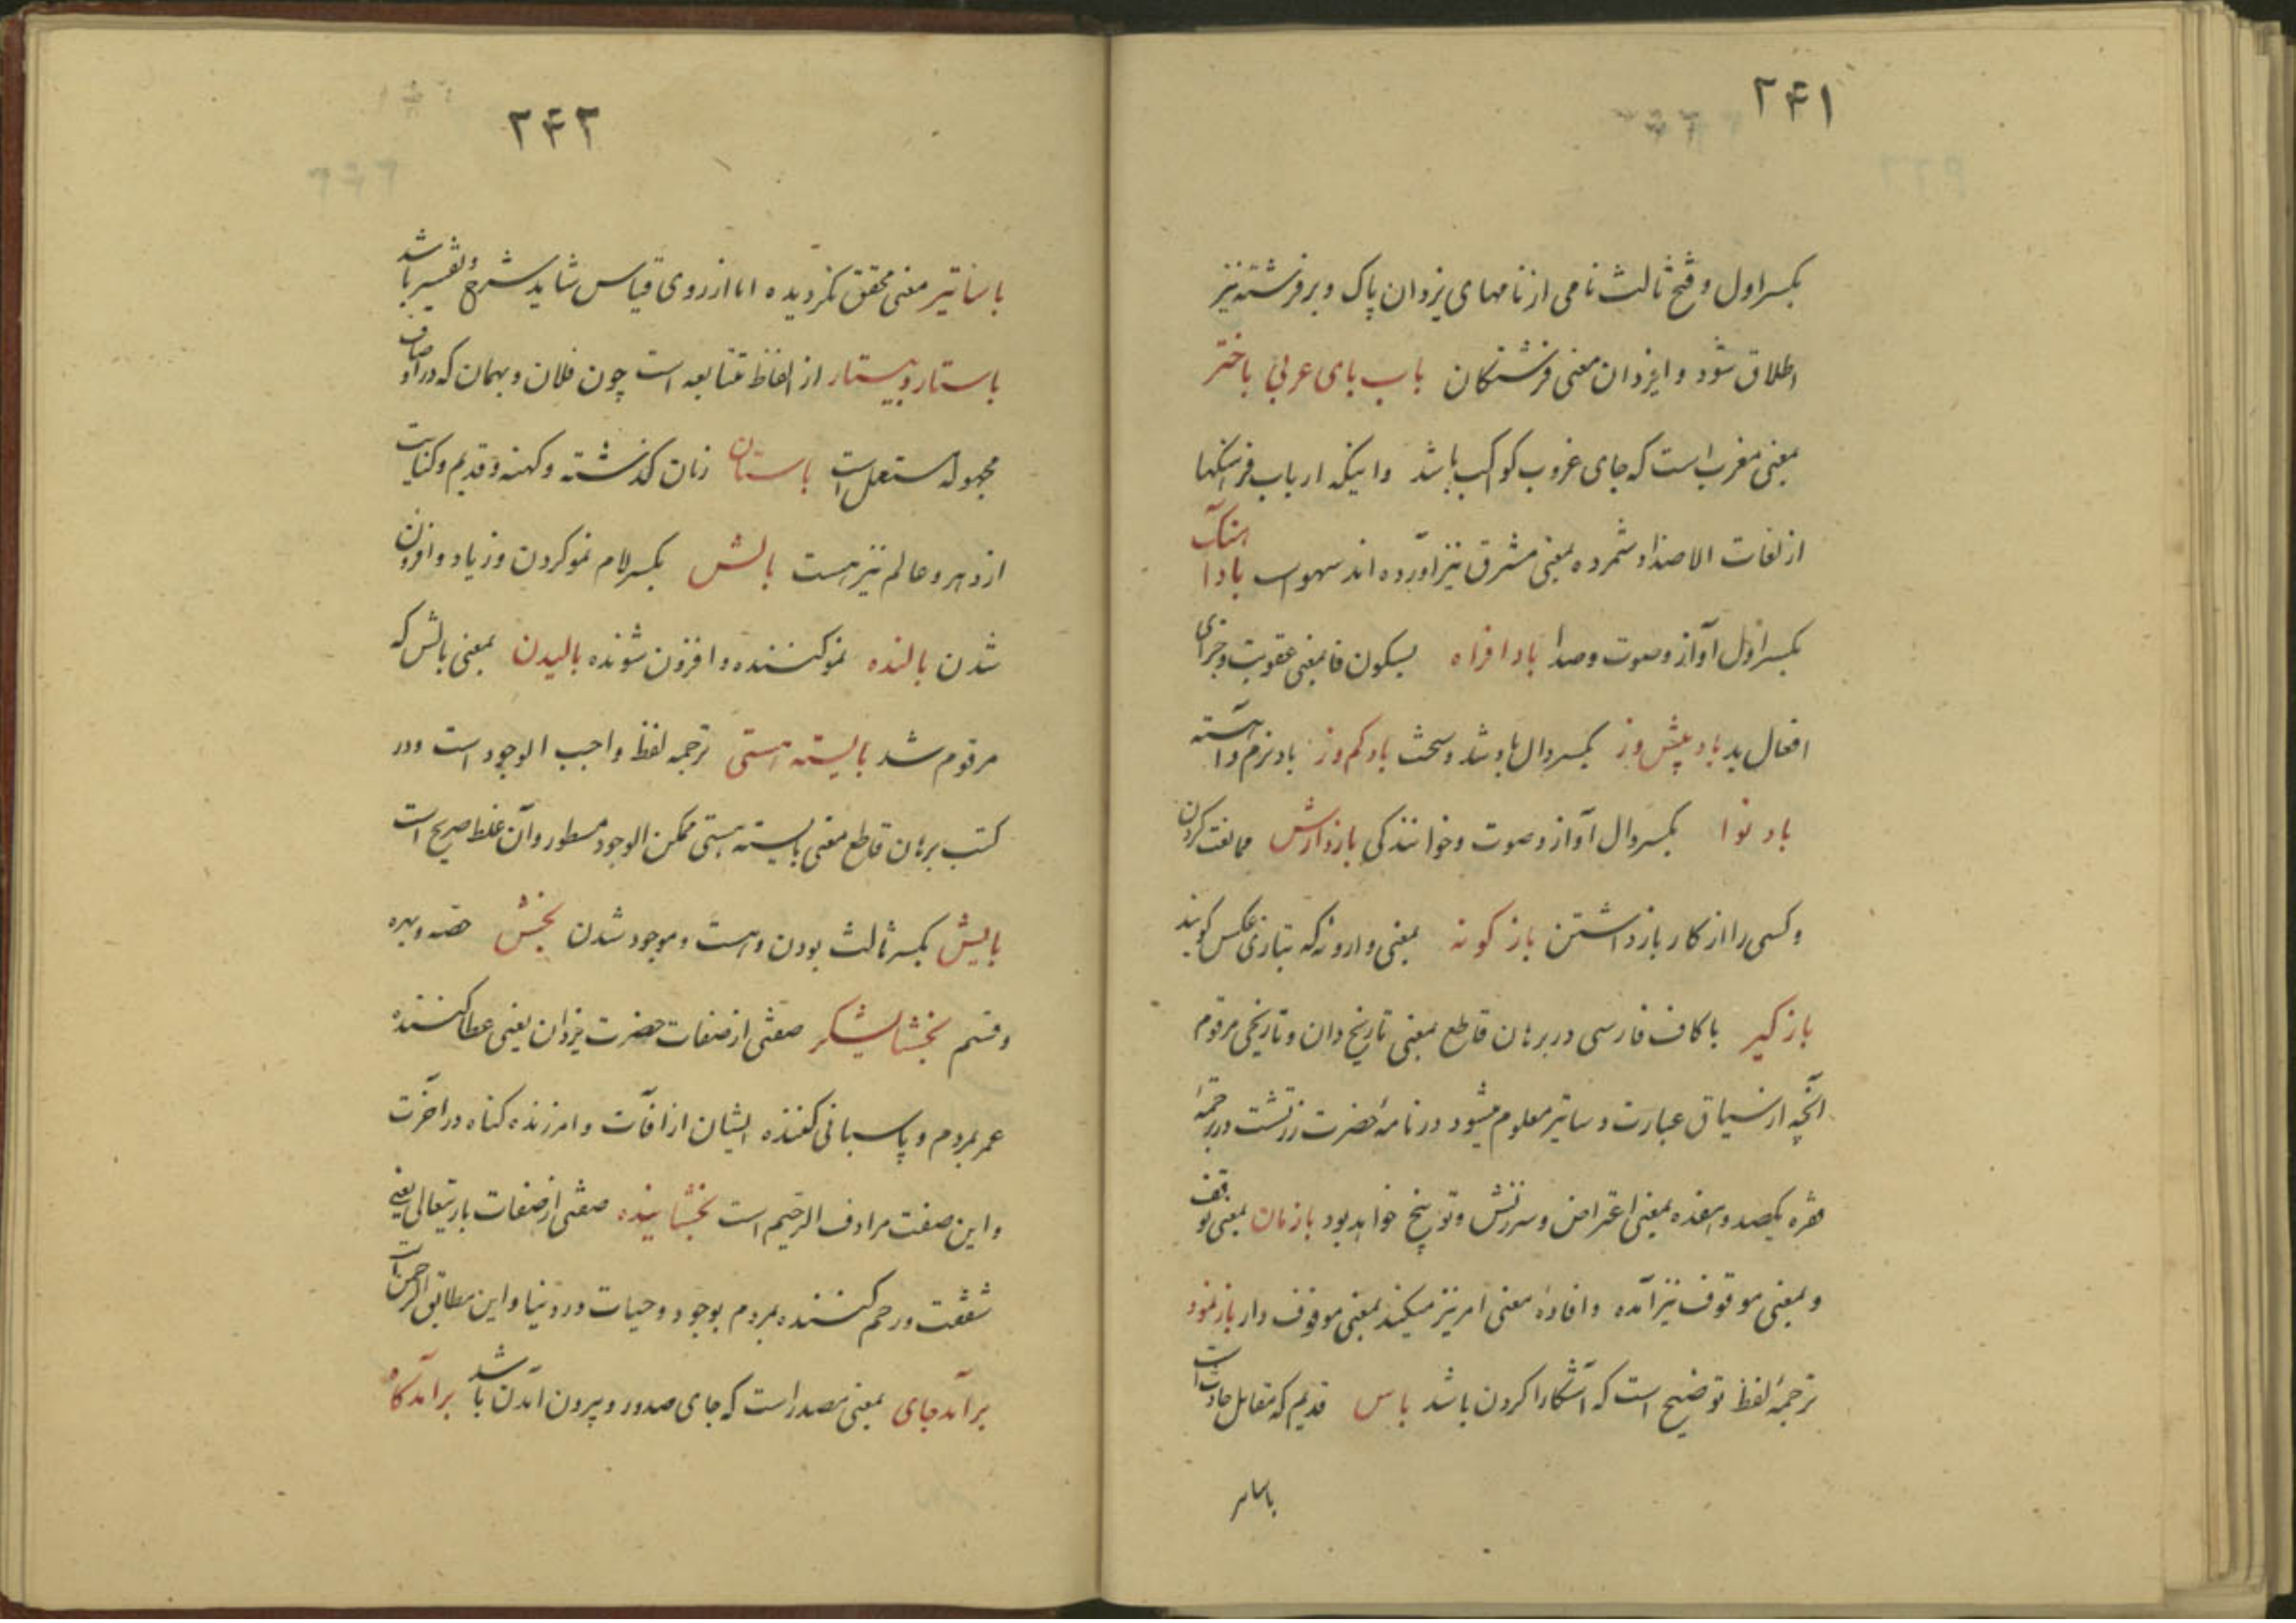 ۲۴۱
بکسر اول و فتح ثالث نامی از نامهای یزدان پاک و بر فرشته نیز
اطلاق شود و ایزدان معنی فرشتکان باب بای عربی باختر
بمعنی مغرب است که جای غروب کوکب باشد و اینکه ارباب فرهنکها
از لغات الاضداد شمرده بمعنی مشرق نیز آورده اند سهو است باد آهنک
بکسر اول آواز و صوت و صدا باد افراه بسکون فا بمعنی عقوبت و جزای
افعال بد باد بیش وز بکسر دال باد شد و سخت باد کم وز باد نرم و آهسته
باد نوا بکسر دال آواز و صوت و خوانندکی بازدارش ممانعت کردن
و کسی را از کار بازداشتن باز کونه بمعنی وارونه که بتازی عکس کویند
باز کیر با کاف فارسی در برهان قاطع بمعنی تاریخ دان و تاریخی مرقوم
آنچه از سیاق عبارت دساتیر معلوم میشود در نامهٔ حضرت زرتشت در ترجمهٔ
فقره یکصد و هفده بمعنی اعتراض و سرزنش و توبیخ خواهد بود بازمان بمعنی توقف
و بمعنی موقوف نیز آمده و افادهٔ معنی امر نیز میکند بمعنی موقوف دار بازنمود
ترجمهٔ لفظ توضیح است که آشکارا کردن باشد باس قدیم که مقابل حادث است
باساتیر
۲۴۲
باساتیر معنی محقق نکردیده اما از روی قیاس شاید شرح و تفسیر باشد
باستار و بیستار از الفاظ متتابعه است چون فلان و بهمان که در اوصاف
مجهوله مستعمل است باستان زمان کذشته و کهنه و قدیم و کنایت
از دهر و عالم نیز هست بالش بکسر لام نمو کردن و زیاد و افزون
شدن بالنده نمو کننده و افزون شونده بالیدن بمعنی بالش که
مرقوم شد بایسته هستی ترجمه لفظ واجب الوجود است و در
کتب برهان قاطع معنی بایسته هستی ممکن الوجود مسطور و آن غلط صریح است
بایش بکسر ثالث بودن و هست و موجود شدن بخش حصه و بهره
و قسم بخشایشکر صفتی از صفات حضرت یزدان یعنی عطا کننده
عمر بمردم و پاسبانی کننده ایشان از آفات و امرزنده کناه در آخرت
و این صفت مرادف الرحیم است بخشاینده صفتی از صفات باریتعالی یعنی
شفقت و رحم کننده بمردم بوجود و حیات در دنیا و این مطابق الرحمن است
برآمدجای بمعنی مصدر است که جای صدور و بیرون آمدن باشد برآمدکاه